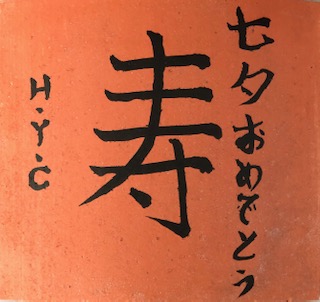 七夕おめでとう
寿
H.Y.C